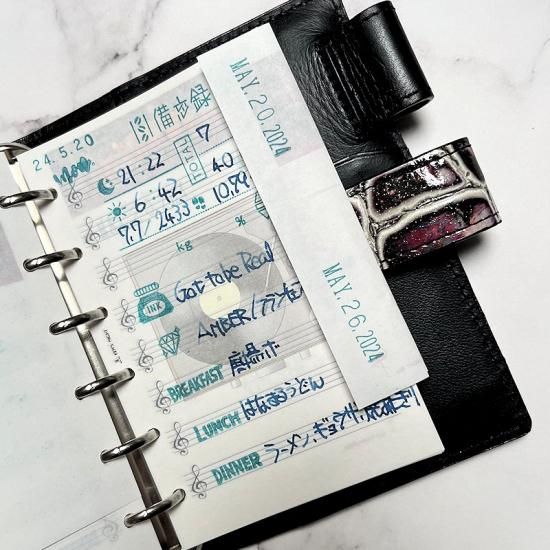 MAY.20.2024
MAY.26.2024
備忘録
24.5.20
Mon.
21:22
TOTAL
7
6:42
40
7.7/2433
10.79
kg
%
INK
Got to be Real
AMBER/
BREAKFAST
LUNCH はなまるうどん
DINNER ラーメン、ギョウザ、